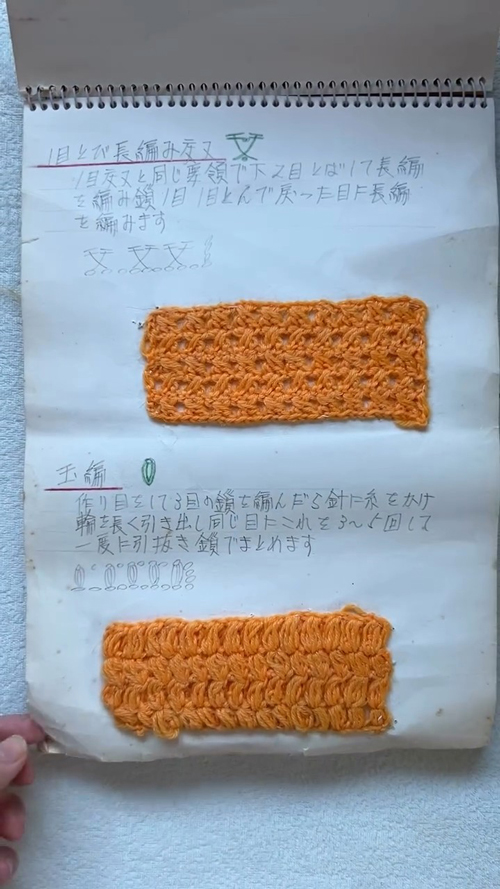 1目とび長編み交叉
1目交叉と同じ要領で下2目とばして長編
を編み鎖1目 1目とんで戻った目に長編
を編みます
玉編
作り目をして3目の鎖を編んだら針に糸をかけ
輪を長く引き出し同じ目にこれを3〜5回して
一度に引抜き鎖でまとめます